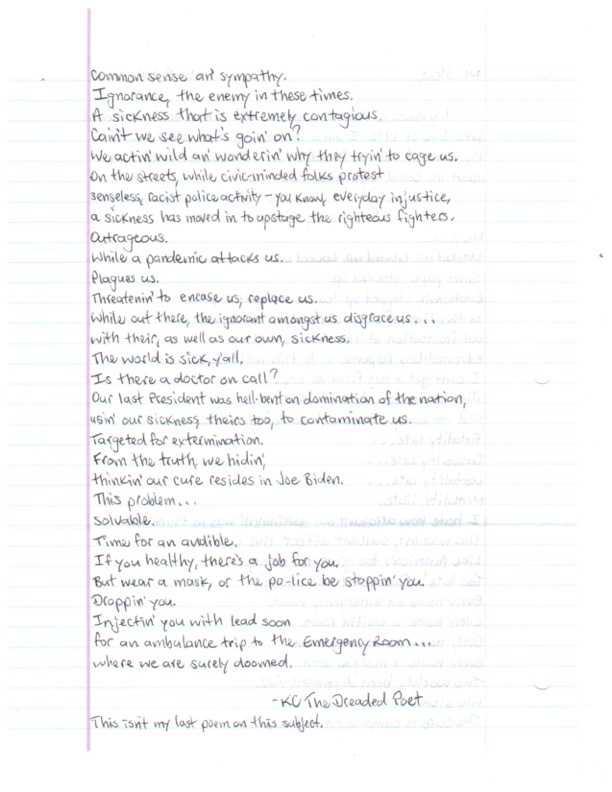 Common sense an' sympathy.
Ignorance, the enemy in these times.
A sickness that is extremely contagious.
Cain't we see what's goin' on?
We actin' wild an' wonderin' why they tryin' to cage us.
On the streets, while civic-minded folks protest
senseless, racist police activity - you know, everyday injustice,
a sickness has moved in to upstage the righteous fighters.
Outrageous.
While a pandemic attacks us.
Plagues us.
Threatenin' to encase us, replace us.
While out there, the ignorant amongst us disgrace us...
with their, as well as our own, sickness.
The world is sick, y'all.
Is there a doctor on call?
Our last President was hell-bent on domination of the nation,
usin' our sickness, theirs too, to contaminate us.
Targeted for extermination.
From the truth, we hidin',
thinkin' our cure resides in Joe Biden.
This problem...
solvable.
Time for an audible.
If you healthy, there's a job for you.
But wear a mask, or the po-lice be stoppin' you.
Droppin' you.
Injectin' you with lead soon
for an ambulance trip to the Emergency Room...
where we are surely doomed.
-KC The Dreaded Poet
This isn't my last poem on this subject.